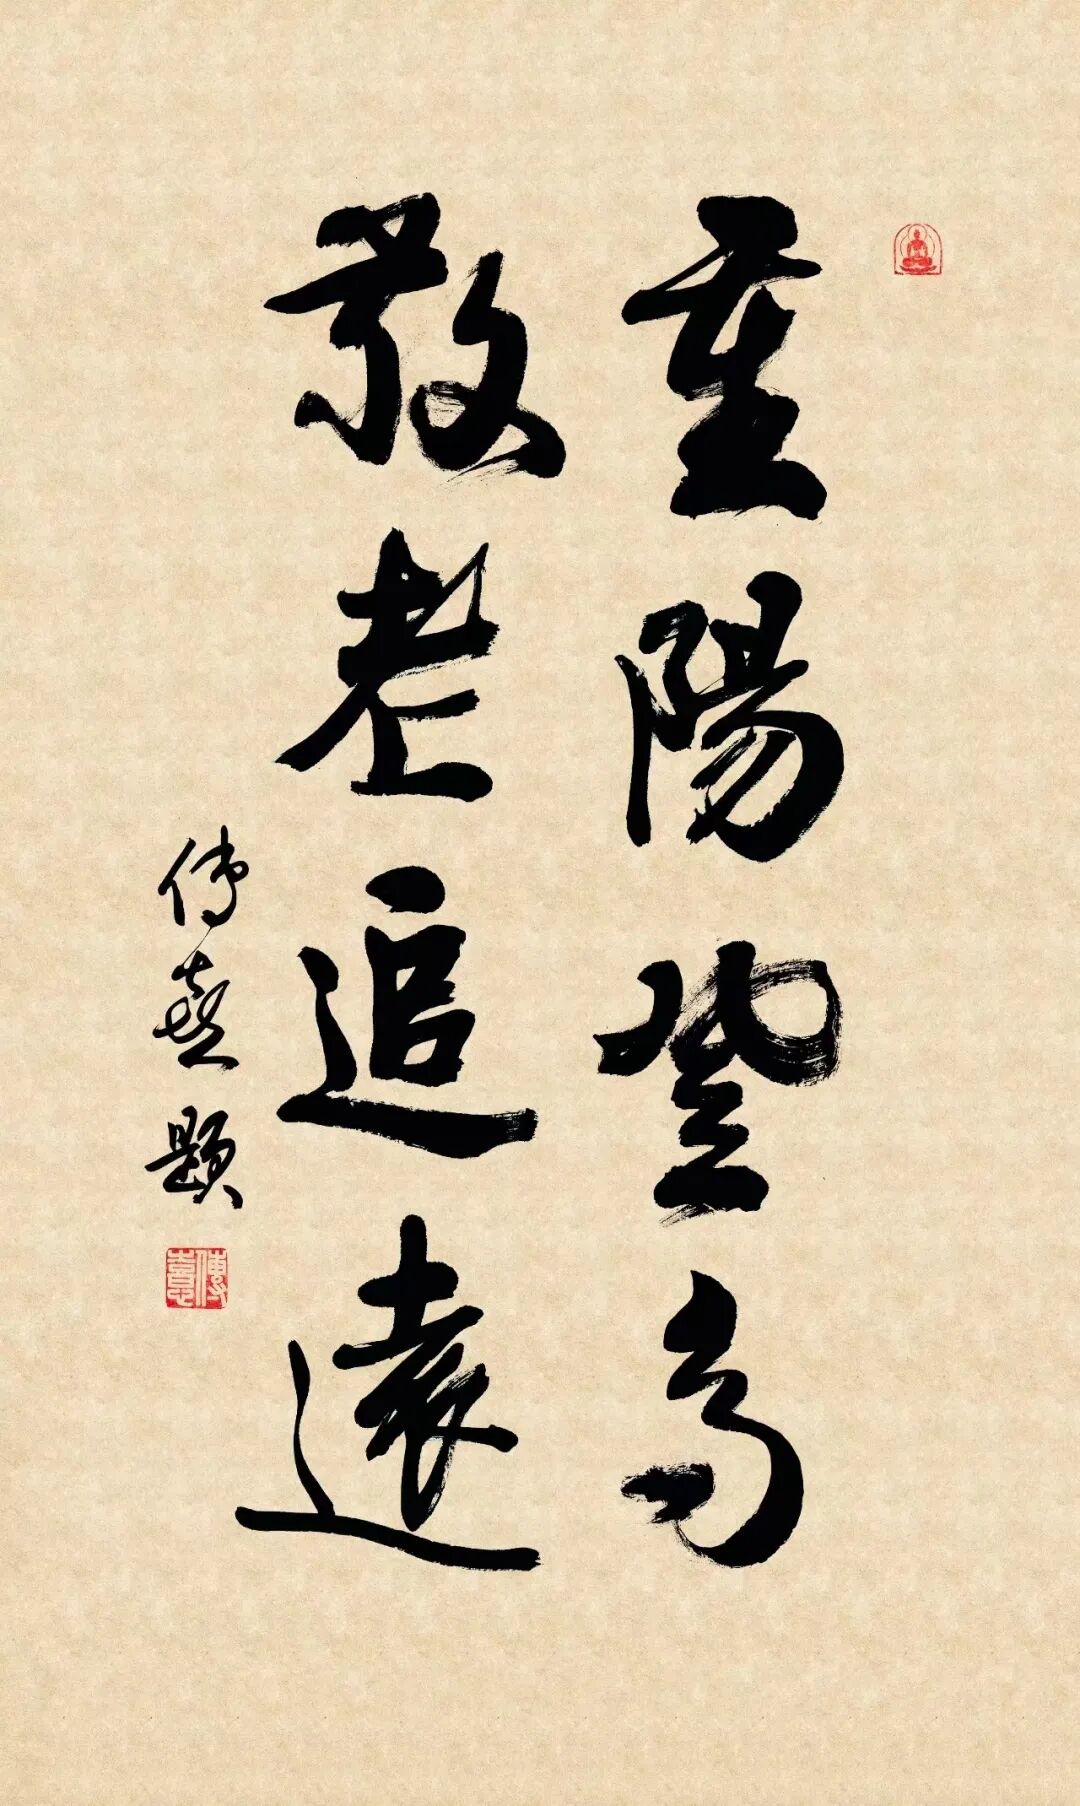 重陽登高
敬老追遠
傳喜題
傳喜